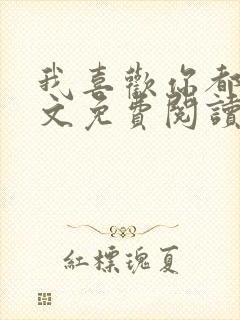 我喜歡你都
文免費閱讀
紅標瑰夏